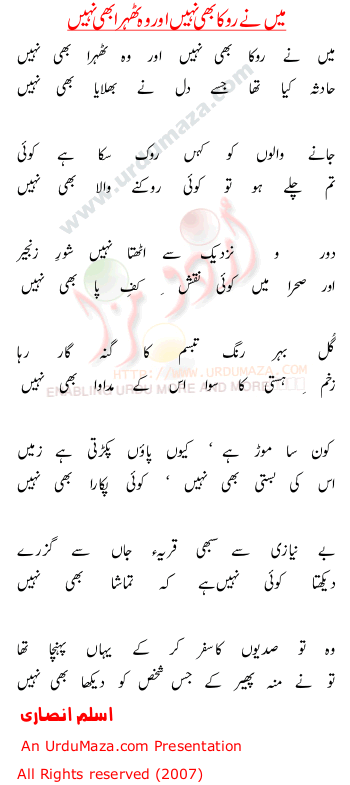 میں نے روکا بھی نہیں اور وہ ٹھہرا بھی نہیں
میں نے روکا بھی نہیں اور وہ ٹھہرا بھی نہیں
حادثہ کیا تھا جسے دل نے بھلایا بھی نہیں
جانے والوں کو کہاں روک سکا ہے کوئی
تم چلے ہو تو کوئی روکنے والا بھی نہیں
دور و نزدیک سے اٹھتا نہیں شورِ زنجیر
اور صحرا میں کوئی نقش ِ کفِ پا بھی نہیں
گُل بہر رنگ تبسم کا گنہ گار رہا
زخم ِ ہستی کا سوا اس کے مداوا بھی نہیں
کون سا موڑ ہے ' کیوں پاؤں پکڑتی ہے زمیں
اس کی بستی بھی نہیں ' کوئی پکارا بھی نہیں
بے نیازی سے سبھی قریہء جاں سے گزرے
دیکھتا کوئی نہیں ہے کہ تماشا بھی نہیں
وہ تو صدیوں کا سفر کر کے یہاں پہنچا تھا
تو نے منہ پھیر کے جس شخص کو دیکھا بھی نہیں
اسلم انصاری
An UrduMaza.com Presentation
All Rights reserved (2007)
www.urdumaza.com
اردو مزا
HTTP://WWW.URDUMAZA.COM
ENABLING URDU MORE AND MORE